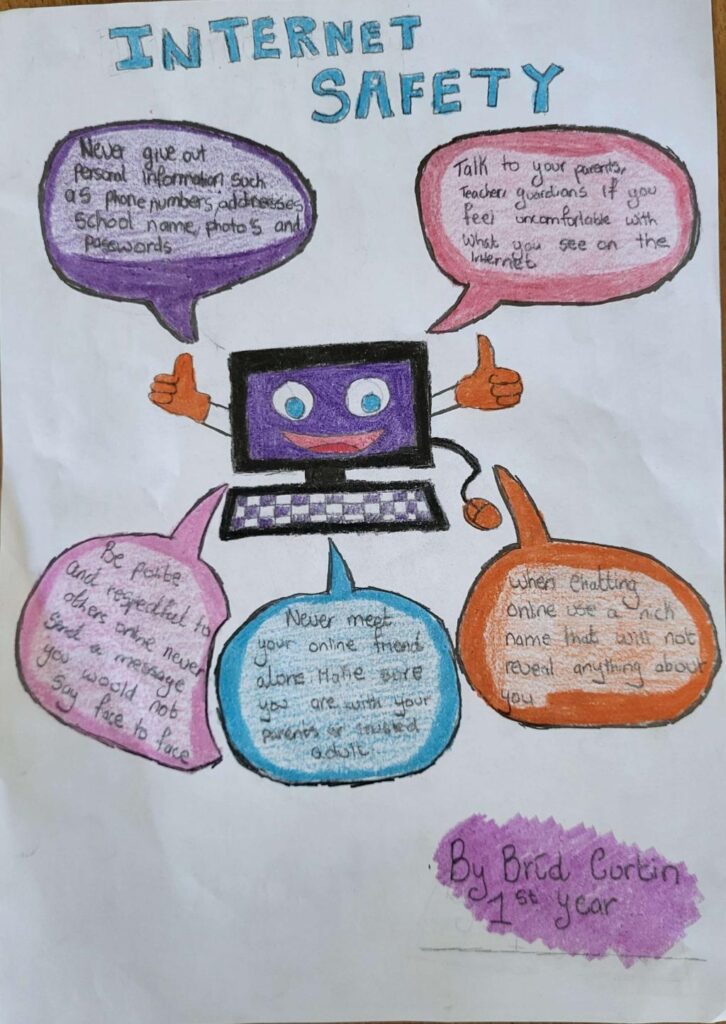 INTERNET
SAFETY
Never give out
personal information such
as phone numbers, addresses,
school name, photo's and
passwords
Talk to your parents,
Teachers guardians if you
feel uncomfortable with
What you see on the
Internet
Be polite
and respectful to
others online never
send a message
you would not
say face to face
Never meet
your online friend
alone. Make sure
you are with your
parents or trusted
adult.
When chatting
online use a nick
name that will not
reveal anything about
you
By Bríd Curtin
1st year